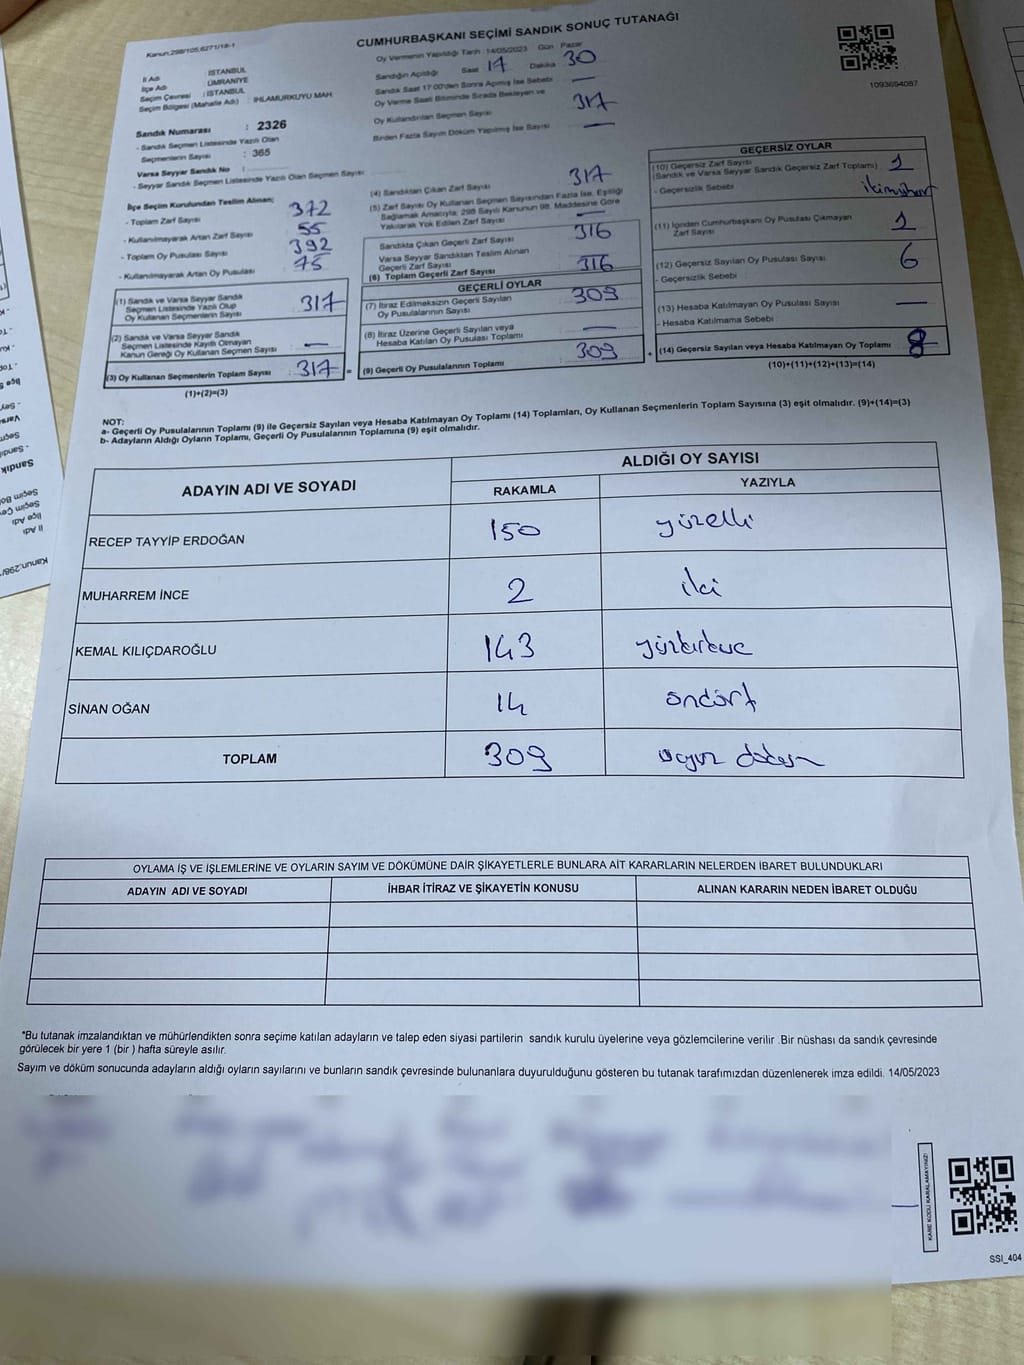 CUMHURBAŞKANI SEÇİMİ SANDIK SONUÇ TUTANAĞI
Kanun:298/105,6271/18-1
İl Adı : İSTANBUL
İlçe Adı : ÜMRANİYE
Seçim Çevresi : İSTANBUL
Seçim Bölgesi (Mahalle Adı) : IHLAMURKUYU MAH.
Sandık Numarası : 2326
- Sandık Seçmen Listesinde Yazılı Olan
Seçmenlerin Sayısı : 365
Varsa Seyyar Sandık No :
- Seyyar Sandık Seçmen Listesinde Yazılı Olan Seçmen Sayısı
Oy Vermenin Yapıldığı Tarih : 14/05/2023 Gün Pazar
Sandığın Açıldığı Saat 17 Dakika 30
Sandık Saat 17:00'den Sonra Açılmış İse Sebebi —
Oy Verme Saati Bitiminde Sırada Bekleyen ve
Oy Kullandırılan Seçmen Sayısı 317
Birden Fazla Sayım Döküm Yapılmış İse Sayısı —
1093694087
İlçe Seçim Kurulundan Teslim Alınan;
- Toplam Zarf Sayısı 372
- Kullanılmayarak Artan Zarf Sayısı 55
- Toplam Oy Pusulası Sayısı 392
- Kullanılmayarak Artan Oy Pusulası 75
(1) Sandık ve Varsa Seyyar Sandık
Seçmen Listesinde Yazılı Olup
Oy Kullanan Seçmenlerin Sayısı 317
(2) Sandık ve Varsa Seyyar Sandık
Seçmen Listesinde Kayıtlı Olmayan
Kanun Gereği Oy Kullanan Seçmen Sayısı —
(3) Oy Kullanan Seçmenlerin Toplam Sayısı 317 =
(1)+(2)=(3)
(4) Sandıktan Çıkan Zarf Sayısı 317
(5) Zarf Sayısı Oy Kullanan Seçmen Sayısından Fazla İse, Eşitliği
Sağlamak Amacıyla; 298 Sayılı Kanunun 98. Maddesine Göre
Yakılarak Yok Edilen Zarf Sayısı —
Sandıkta Çıkan Geçerli Zarf Sayısı 316
Varsa Seyyar Sandıktan Teslim Alınan
Geçerli Zarf Sayısı
(6) Toplam Geçerli Zarf Sayısı 316
GEÇERLİ OYLAR
(7) İtiraz Edilmeksizin Geçerli Sayılan
Oy Pusulalarının Sayısı 309
(8) İtiraz Üzerine Geçerli Sayılan veya
Hesaba Katılan Oy Pusulası Toplamı —
(9) Geçerli Oy Pusulalarının Toplamı 309 +
GEÇERSİZ OYLAR
(10) Geçersiz Zarf Sayısı
(Sandık ve Varsa Seyyar Sandık Geçersiz Zarf Toplamı) 1
- Geçersizlik Sebebi iki mühür
(11) İçinden Cumhurbaşkanı Oy Pusulası Çıkmayan
Zarf Sayısı 1
(12) Geçersiz Sayılan Oy Pusulası Sayısı 6
- Geçersizlik Sebebi :
(13) Hesaba Katılmayan Oy Pusulası Sayısı —
- Hesaba Katılmama Sebebi :
(14) Geçersiz Sayılan veya Hesaba Katılmayan Oy Toplamı 8
(10)+(11)+(12)+(13)=(14)
NOT:
a- Geçerli Oy Pusulalarının Toplamı (9) ile Geçersiz Sayılan veya Hesaba Katılmayan Oy Toplamı (14) Toplamları, Oy Kullanan Seçmenlerin Toplam Sayısına (3) eşit olmalıdır. (9)+(14)=(3)
b- Adayların Aldığı Oyların Toplamı, Geçerli Oy Pusulalarının Toplamına (9) eşit olmalıdır.
ADAYIN ADI VE SOYADI ALDIĞI OY SAYISI
RAKAMLA YAZIYLA
RECEP TAYYİP ERDOĞAN 150 yüzelli
MUHARREM İNCE 2 iki
KEMAL KILIÇDAROĞLU 143 yüzkırküç
SİNAN OĞAN 14 ondört
TOPLAM 309 üçyüz dokuz
OYLAMA İŞ VE İŞLEMLERİNE VE OYLARIN SAYIM VE DÖKÜMÜNE DAİR ŞİKAYETLERLE BUNLARA AİT KARARLARIN NELERDEN İBARET BULUNDUKLARI
ADAYIN ADI VE SOYADI İHBAR İTİRAZ VE ŞİKAYETİN KONUSU ALINAN KARARIN NEDEN İBARET OLDUĞU
*Bu tutanak imzalandıktan ve mühürlendikten sonra seçime katılan adayların ve talep eden siyasi partilerin sandık kurulu üyelerine veya gözlemcilerine verilir .Bir nüshası da sandık çevresinde
görülecek bir yere 1 (bir ) hafta süreyle asılır.
Sayım ve döküm sonucunda adayların aldığı oyların sayılarını ve bunların sandık çevresinde bulunanlara duyurulduğunu gösteren bu tutanak tarafımızdan düzenlenerek imza edildi. 14/05/2023
KARE KODU KARALAMAYINIZ!
SSI_404